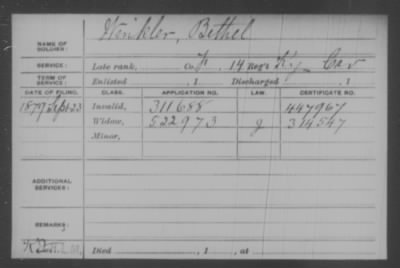 Winkler, Bethel
NAME OF SOLDIER:
SERVICE: Late rank, Co. F, 14 Reg't Ky Cav
TERM OF SERVICE: Enlisted , 1 Discharged , 1
DATE OF FILING. CLASS. APPLICATION NO. LAW. CERTIFICATE NO.
1879 Sept 23 Invalid, 311688 447967
Widow, 522973 g 314547
Minor,
ADDITIONAL SERVICES:
REMARKS:
Died , 1 , at